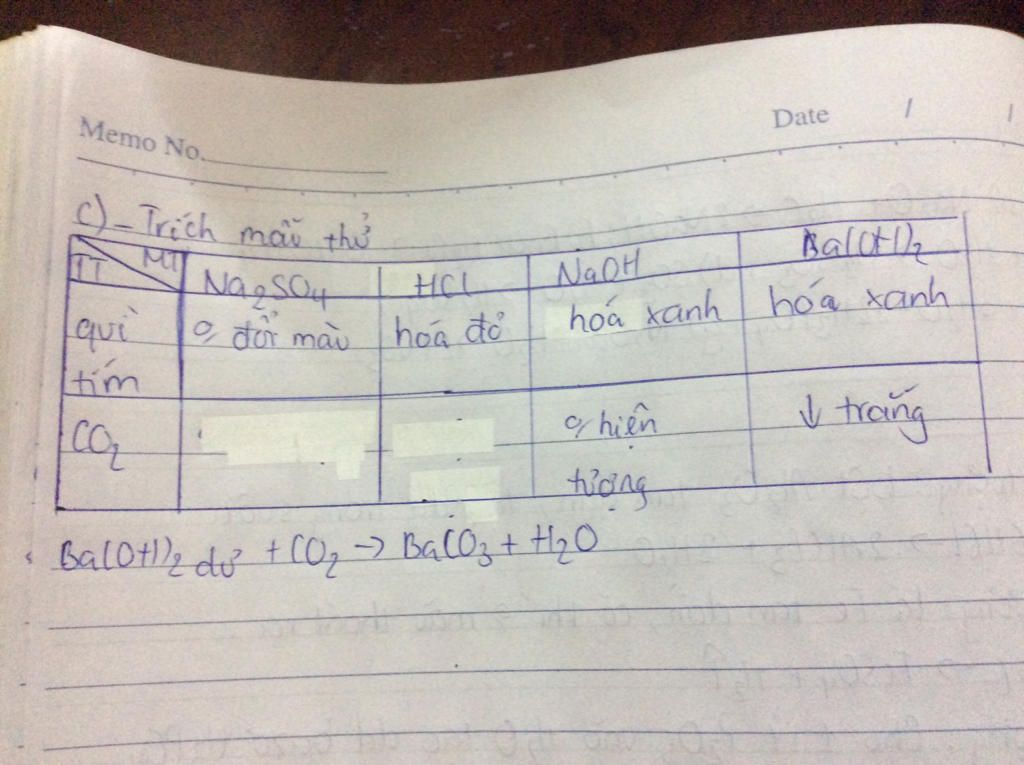 Memo No.
Date / /
c) - Trích mẫu thử
TT MT Na₂SO₄ HCl NaOH Ba(OH)₂
quì tím o/ đổi màu hóa đỏ hoá xanh hóa xanh
CO₂ - o/ hiện tượng ↓ trắng
Ba(OH)₂ dư + CO₂ → BaCO₃ + H₂O